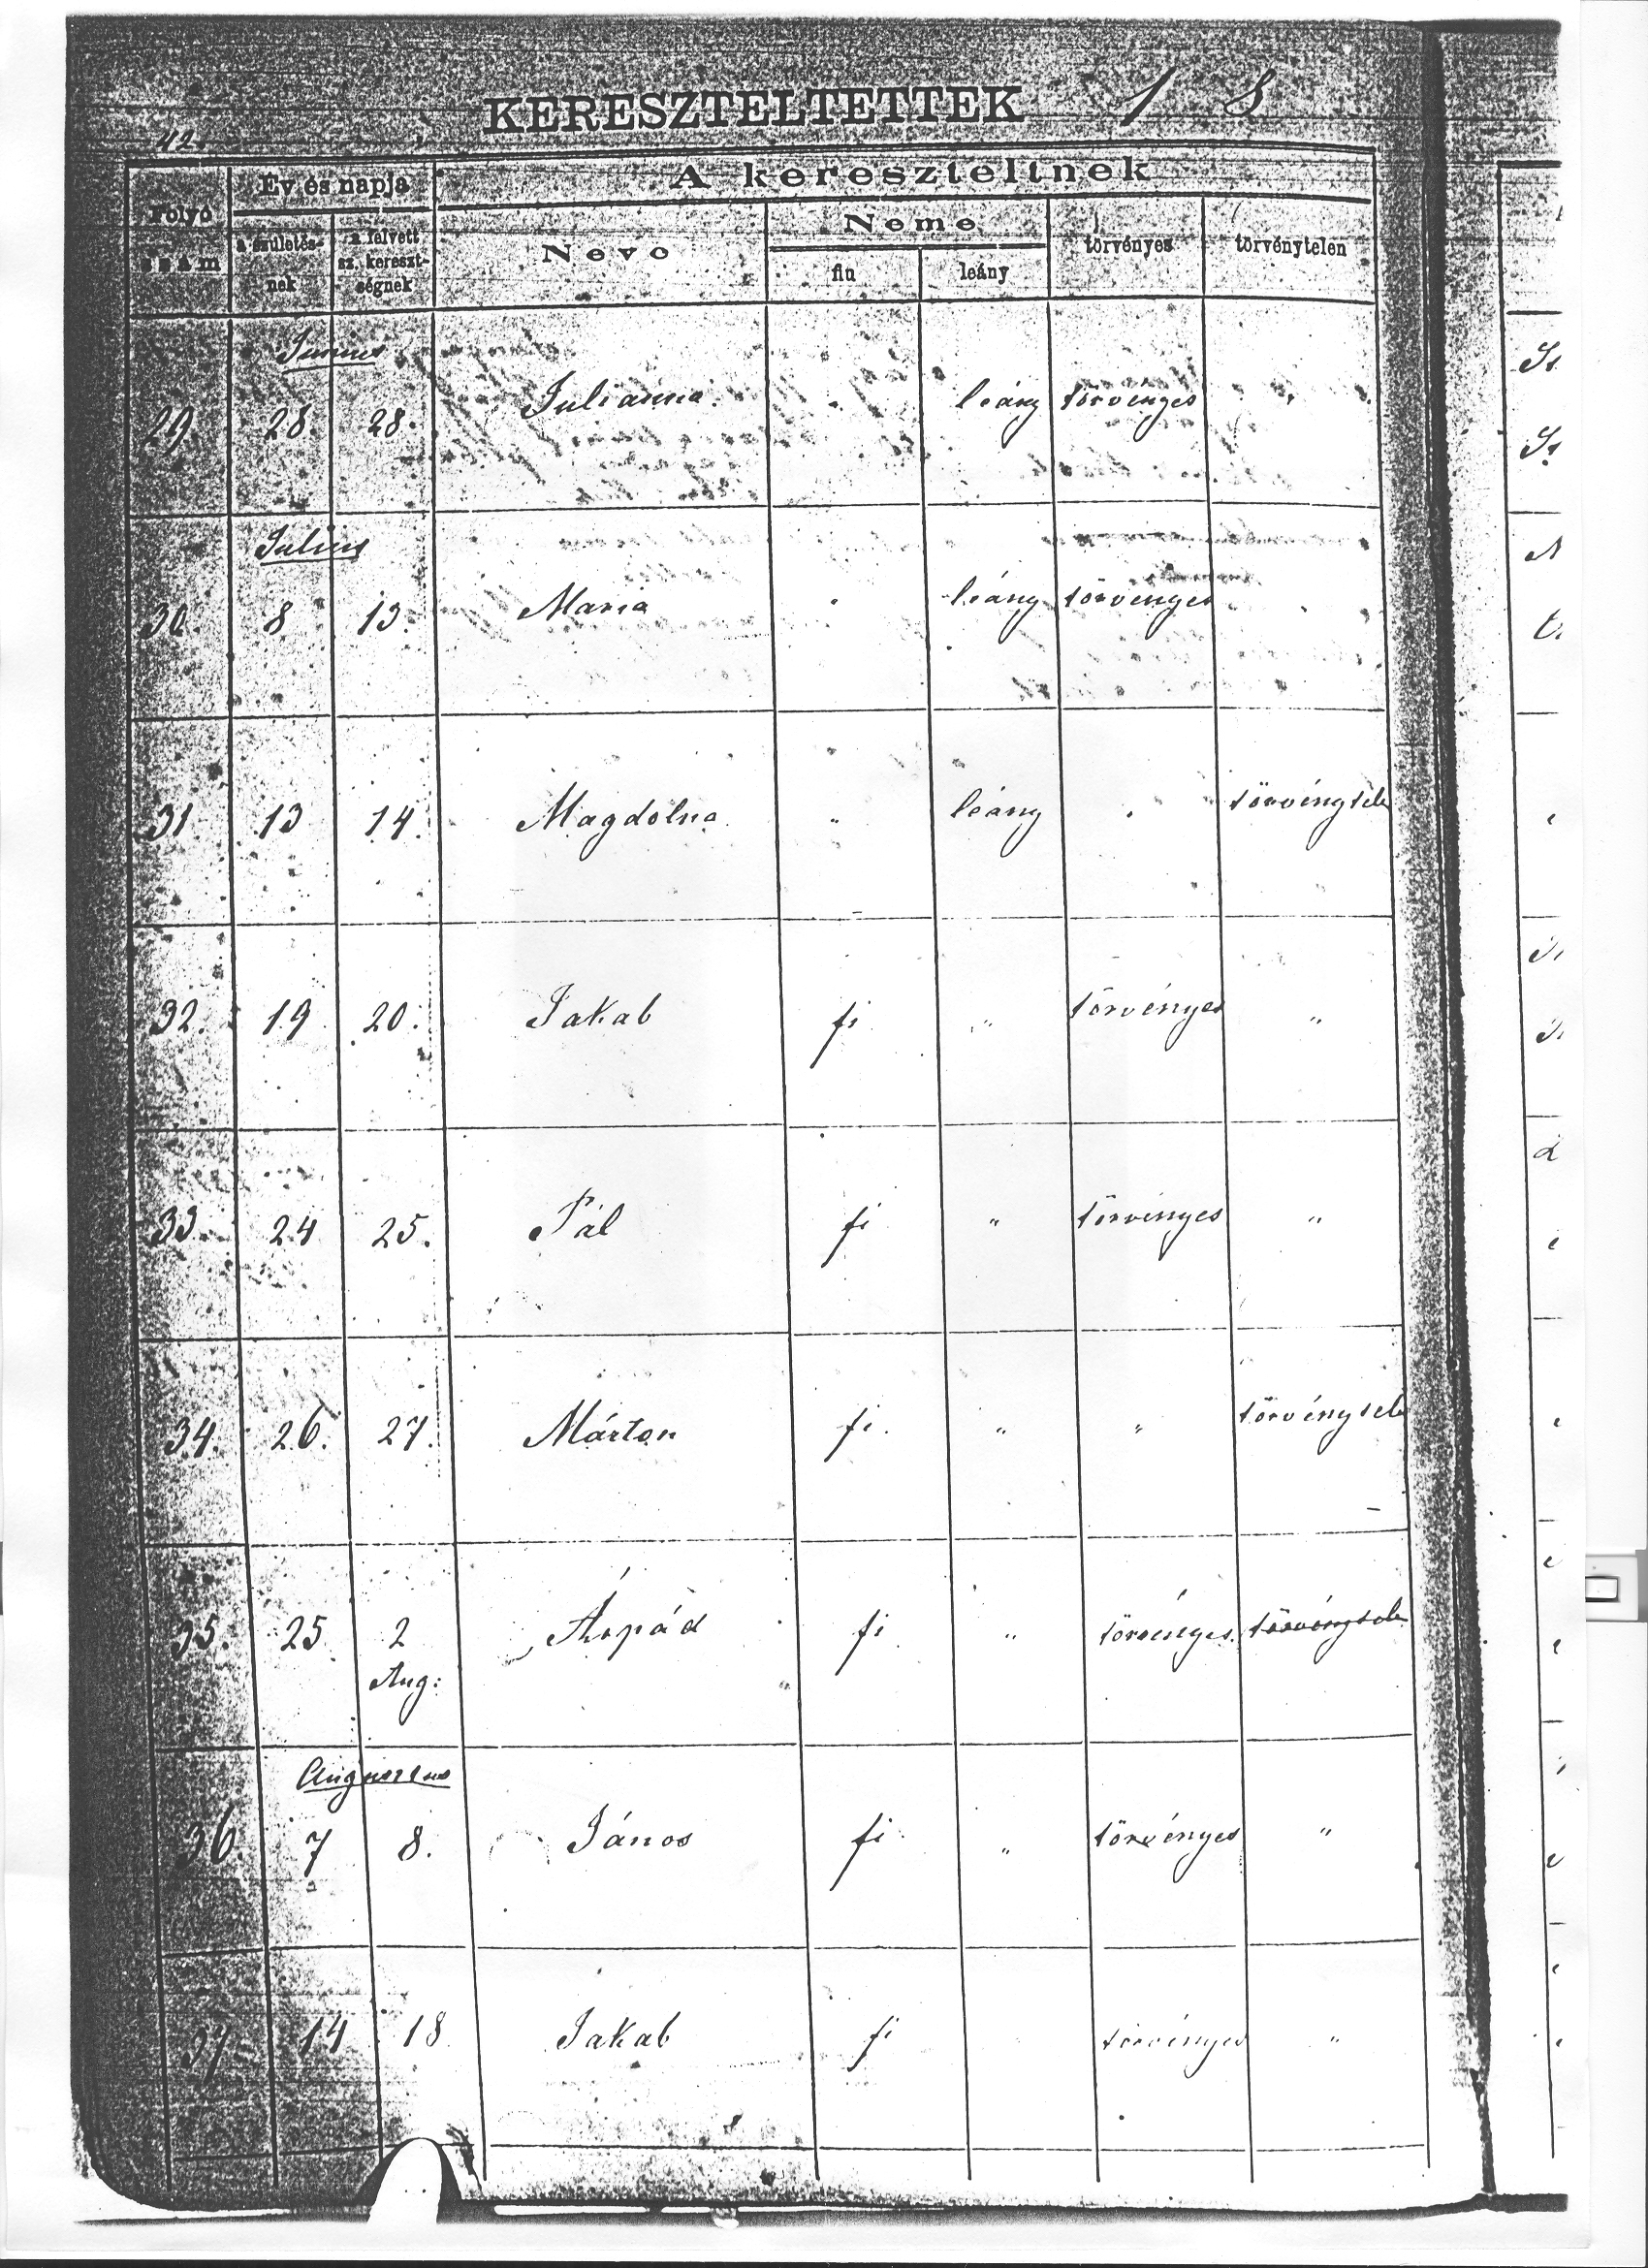 KERESZTELTETTEK 1 8
42.
Folyó szám
Év és napja
a születés-
nek
a felvett
sz. kereszt-
ségnek
A kereszteltnek
Neve
Neme
fiu
leány
törvényes
törvénytelen
Junius
29. 28. 28. Julianna leány törvényes "
Julius
30. 8 13. Maria " leány törvényes "
31. 13 14. Magdolna " leány " törvénytele
32. 19 20. Jakab fi " törvényes "
33. 24 25. Pál fi " törvényes "
34. 26. 27. Márton fi. " " törvénytele
35. 25 2 Árpád fi " törvényes. törvénytele
Aug:
Augusztus
36. 7 8. János fi " törvényes "
37 14 18 Jakab fi törvényes "